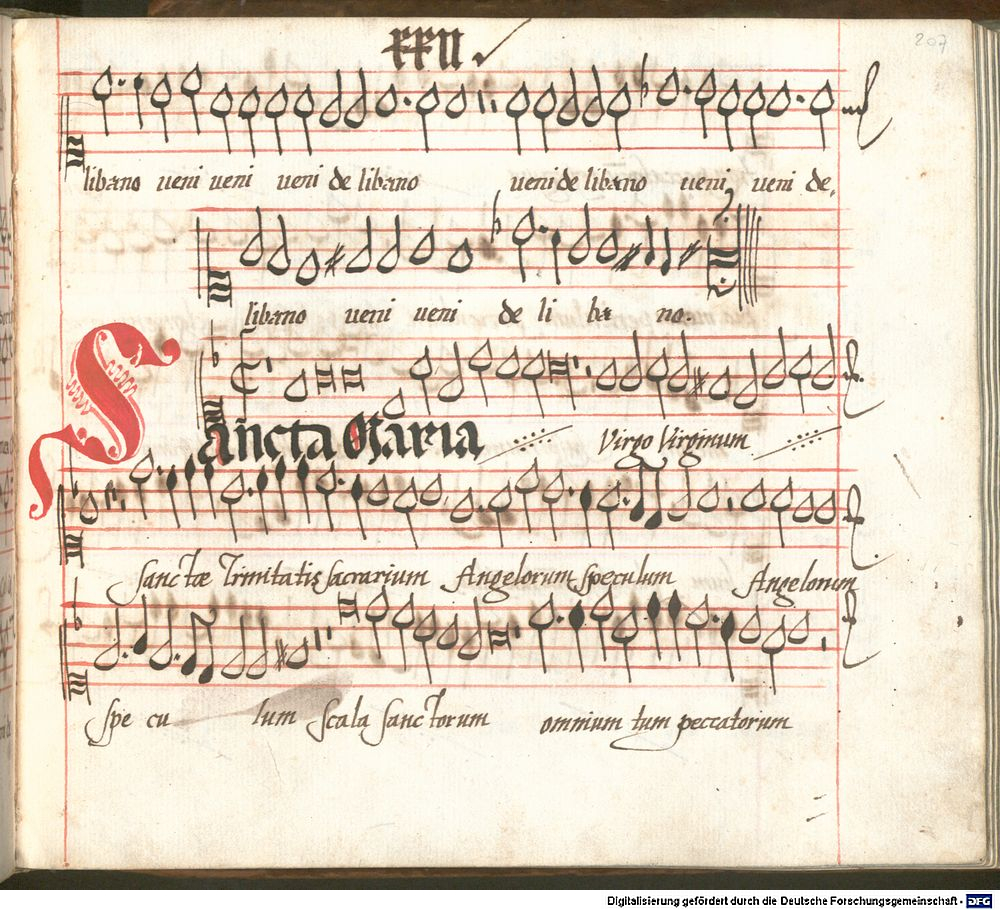 XXII
207
libano veni veni veni de libano veni de libano veni veni de
libano veni veni de li ba no
Sancta Maria Virgo Virginum
Sanctæ Trinitatis sacrarium Angelorum speculum Angelorum
spe cu lum scala sanctorum omnium tum peccatorum
Digitalisierung gefördert durch die Deutsche Forschungsgemeinschaft - DFG